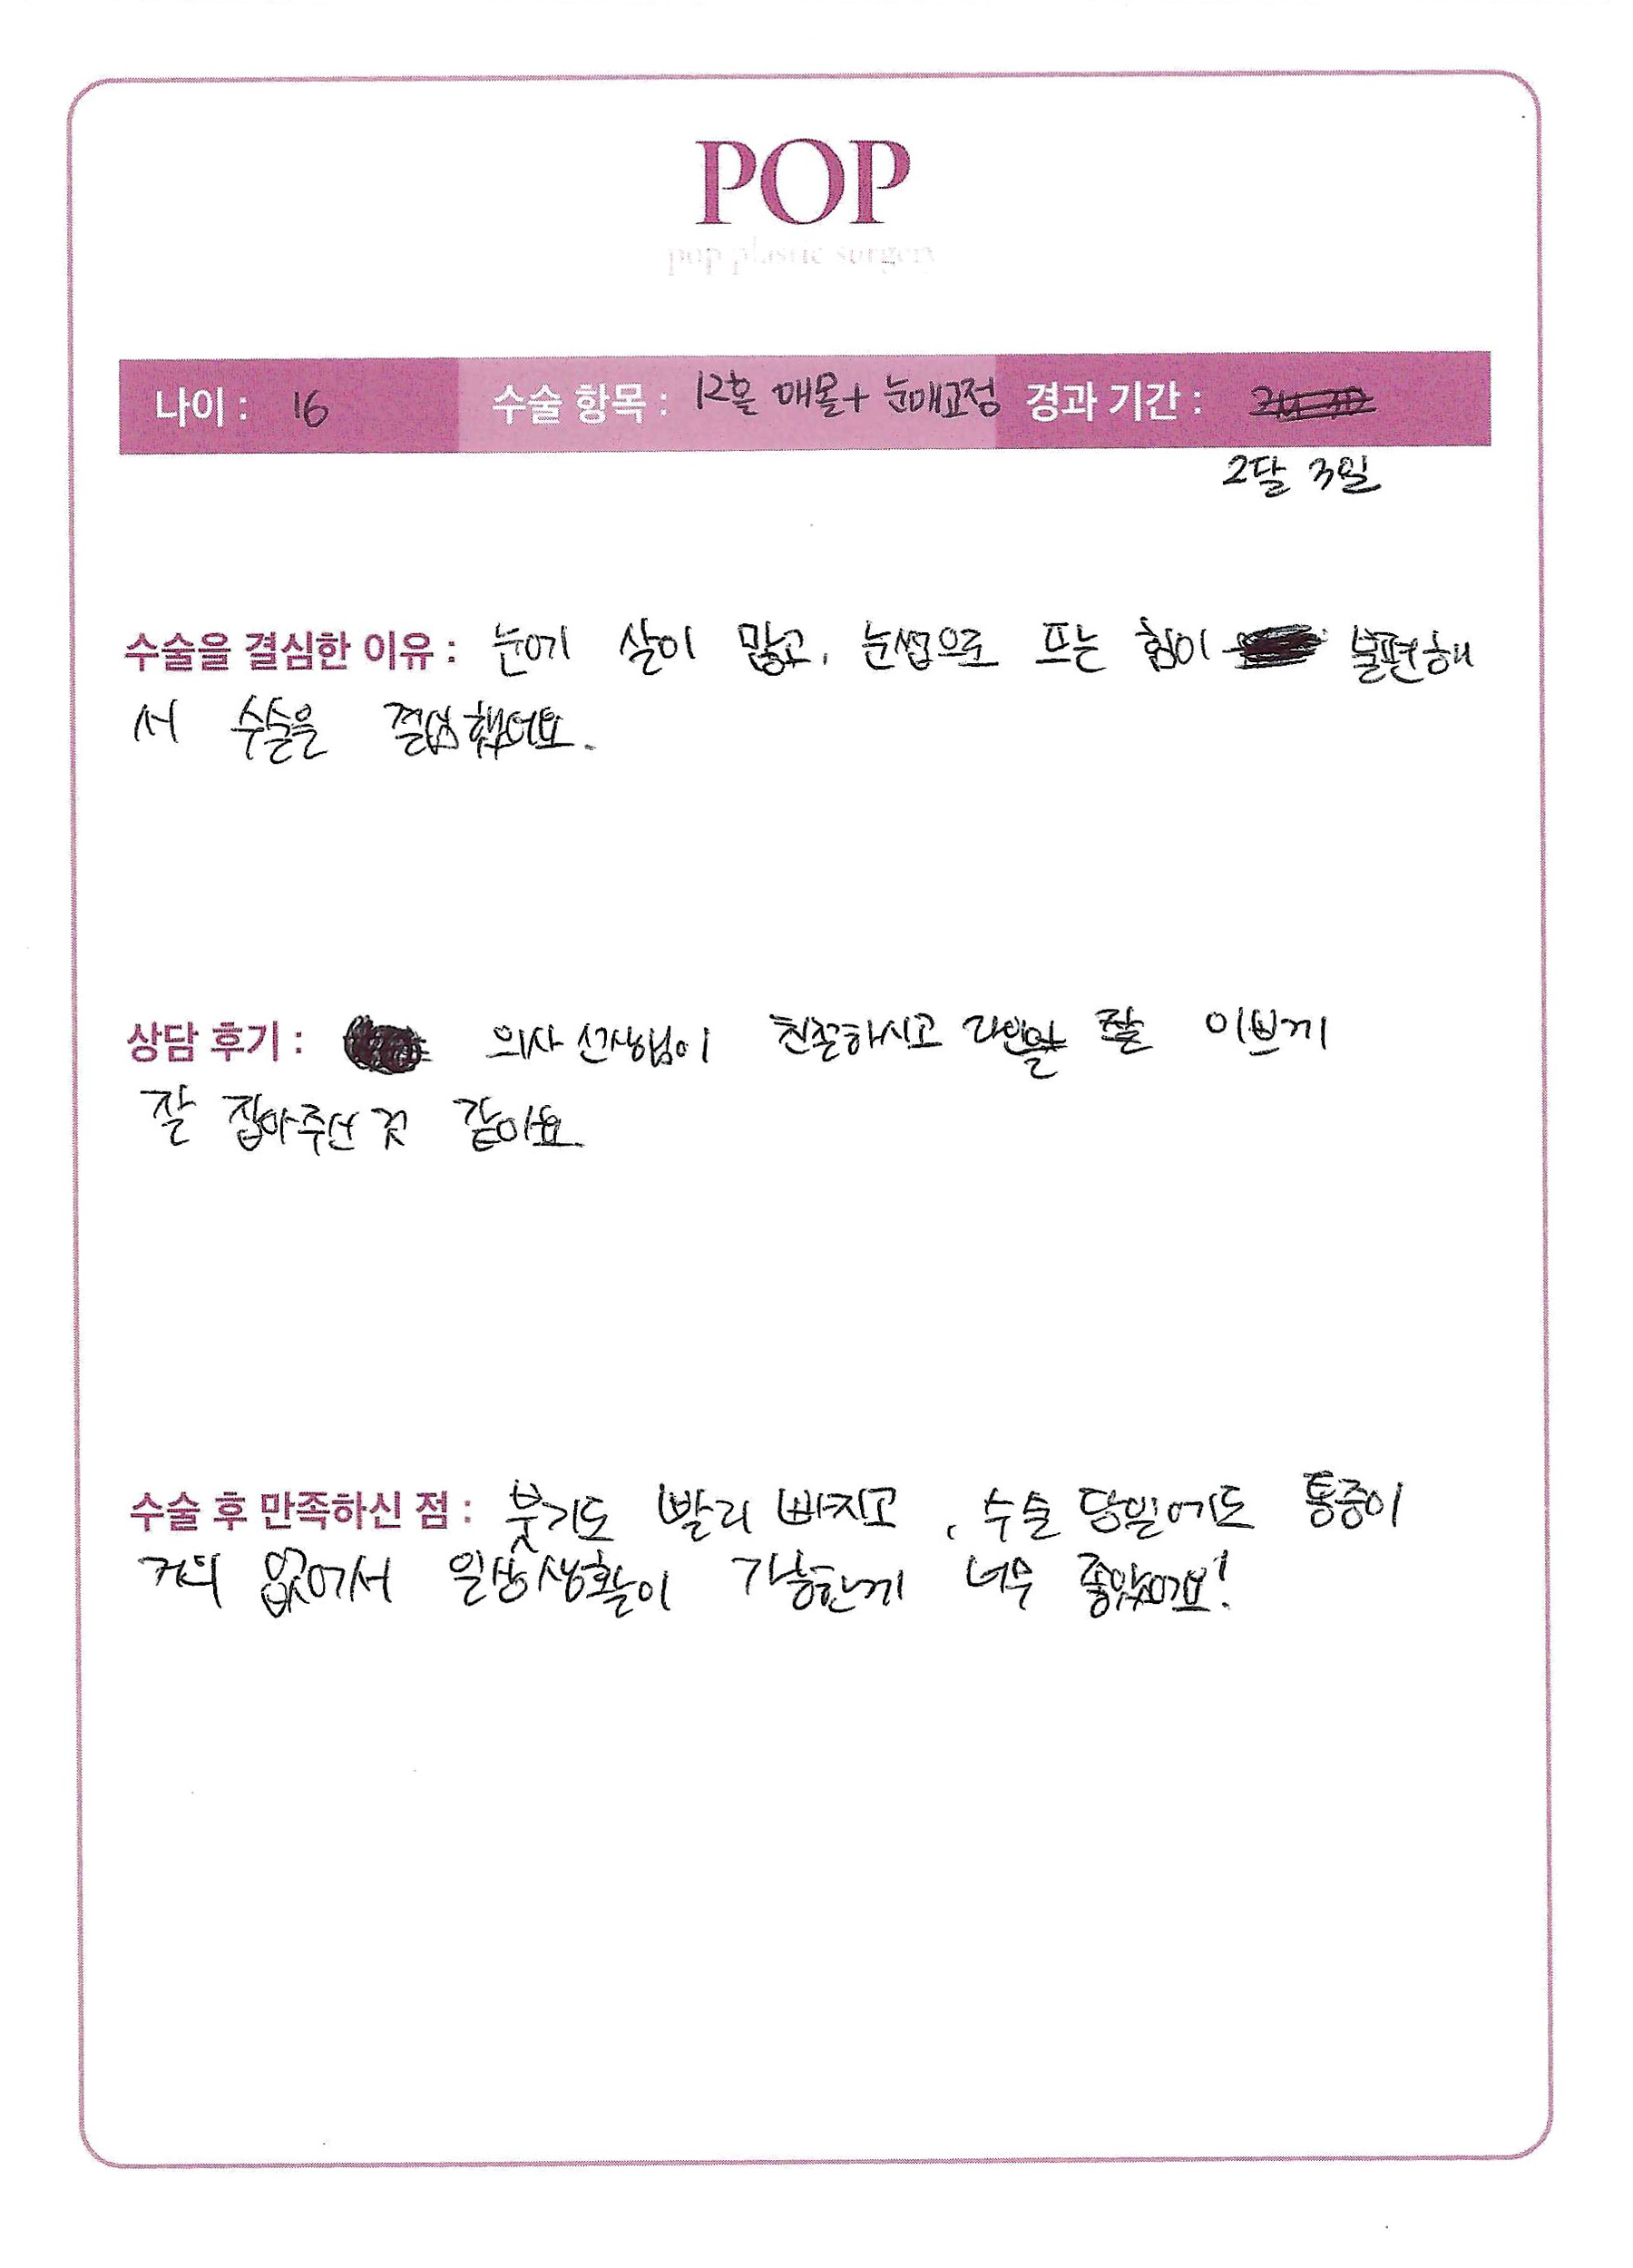 POP
pop plastic surgery
나이 : 16 수술 항목 : 12홀 매몰+ 눈매교정 경과 기간 :
2달 3일
수술을 결심한 이유 : 눈에 살이 많고, 눈썹으로 뜨는 힘이 불편해
서 수술을 결심했어요.
상담 후기 : 의사 선생님이 친절하시고 라인을 잘 이쁘게
잘 잡아주신 것 같아요.
수술 후 만족하신 점 : 붓기도 빨리 빠지고, 수술 당일에도 통증이
거의 없어서 일상생활이 가능한게 너무 좋았어요!